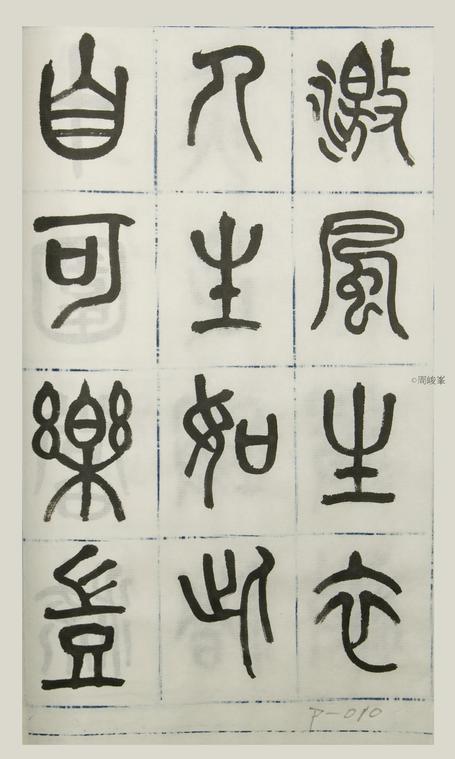 激風生衣
人生如此
自可樂豈
©周峻峯
P-010